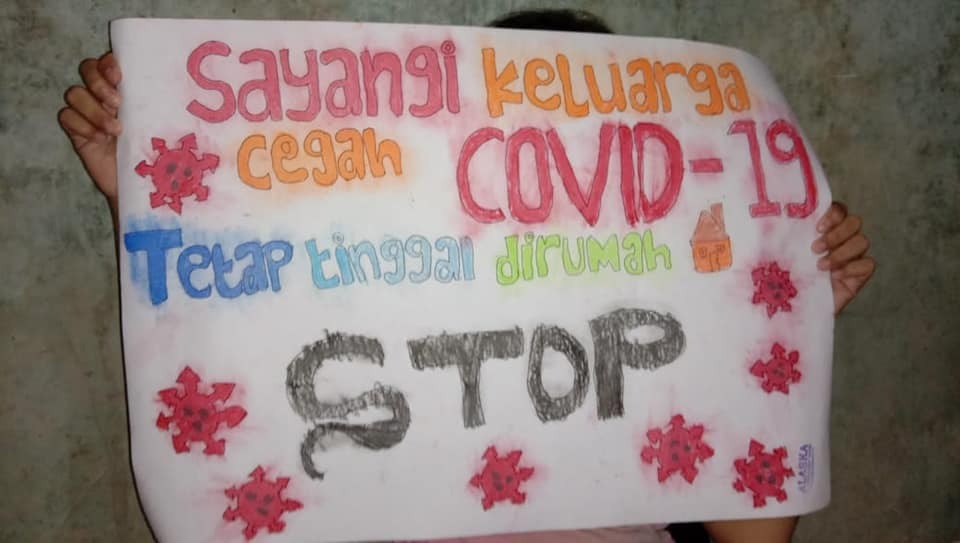 Sayangi keluarga
cegah COVID-19
Tetap tinggal dirumah
STOP
ALASKA